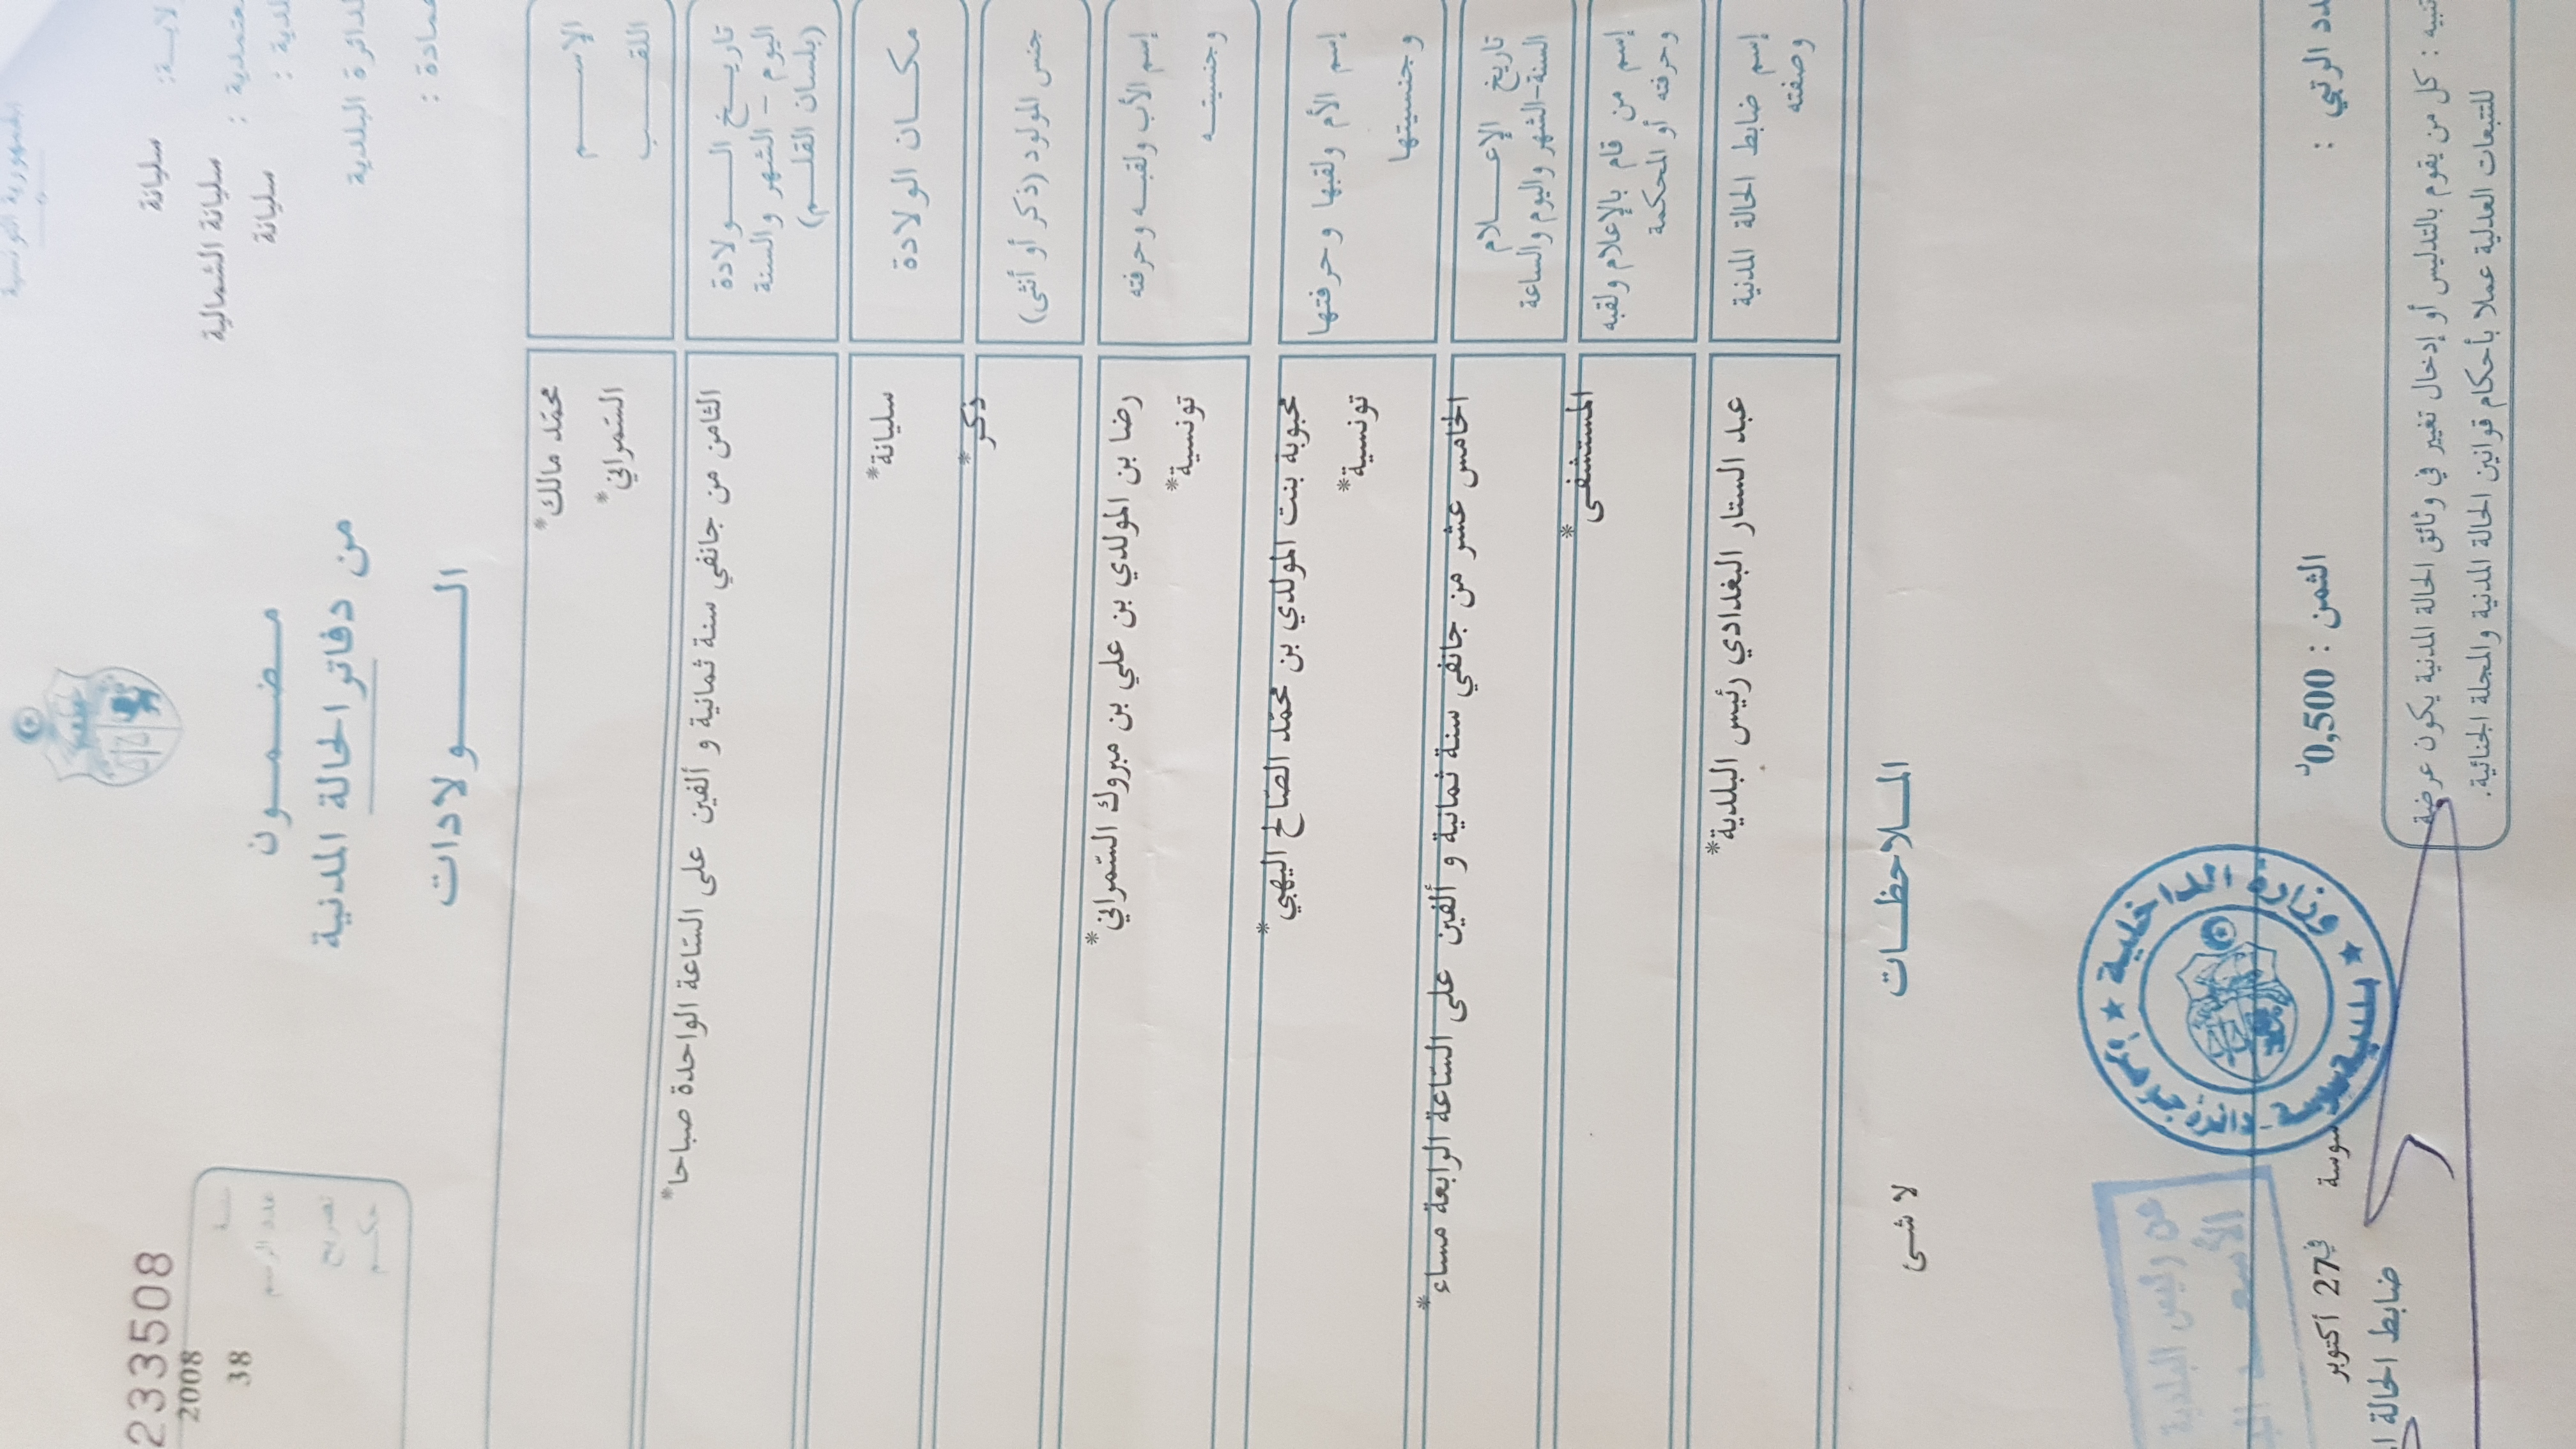 الجمهورية التونسية
سليانة
سليانة الشمالية
سليانة
الدائرة البلدية
233508
2008
38
عدد الرسم
تصريح
حكم
مضمون
من دفاتر الحالة المدنية
الولادات
الإسم
اللقب
محمّد مالك*
السّمراني*
تاريخ الولادة
اليوم - الشهر والسنة
(بلسان القلم)
الثامن من جانفي سنة ثمانية و ألفين على السّاعة الواحدة صباحا*
مكان الولادة
سليانة*
جنس المولود (ذكر أو أنثى)
ذكر*
إسم الأب ولقبه وحرفته
وجنسيته
رضا بن المولدي بن علي بن مبروك السّمراني*
تونسية*
إسم الأم ولقبها وحرفتها
وجنسيتها
محبوبة بنت المولدي بن محمّد الصّالح اليهبي*
تونسية*
تاريخ الإعلام
السنة-الشهر واليوم والساعة
الخامس عشر من جانفي سنة ثمانية و ألفين على السّاعة الرابعة مساء*
إسم من قام بالإعلام ولقبه
وحرفته أو المحكمة
المستشفى*
إسم ضابط الحالة المدنية
وصفته
عبد الستار البغدادي رئيس البلدية*
الملاحظات
لا شئ
وزارة الداخلية
بلدية سوسة - دائرة جوهرة
عن رئيس البلدية
الأسعد
الثمن : 0,500د
سوسة في27 أكتوبر
ضابط الحالة
كل من يقوم بالتدليس أو إدخال تغيير في وثائق الحالة المدنية يكون عرضة
للتتبعات العدلية عملا بأحكام قوانين الحالة المدنية والمجلة الجنائية.